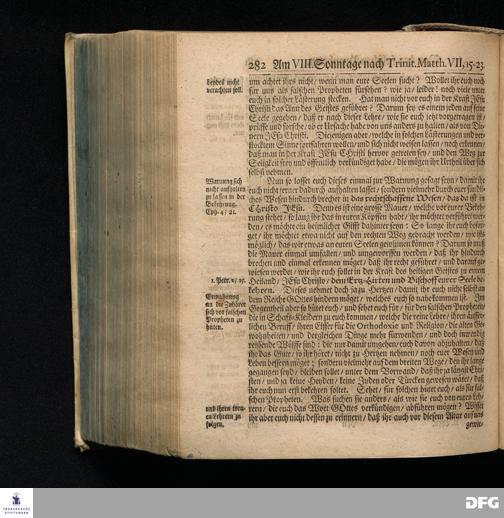 282 Am VIII. Sonntage nach Trinit. Matth. VII, 15-23.
beydes nicht
verachten soll.
um achtet ihrs nicht/ wenn man eure Seelen sucht? Wollet ihr euch noch
für uns als falschen Propheten fürsehen? wie ja/ leider! noch viele unter
euch in solcher Lästerung stecken. Hat man nicht vor euch in der Krafft JEsu
Christi das Amt des Geistes geführet? Darum sey es einem jeden auf seine
Seele gegeben/ daß er nach dieser Lehre/ wie sie euch jetzt vorgetragen ist/
prüfe und forsche/ ob er Ursache habe von uns anders zu halten/ als von Die-
nern JEsu Christi. Diejenigen aber/ welche in solchen Lästerungen und ver-
stocktem Sinne fortfahren wollen/ und sich nicht weisen lassen/ noch erkennen/
daß man in der Krafft JEsu Christi hervor getreten sey/ und den Weg zur
Seligkeit frey und öffentlich verkündiget habe/ die mögen ihr Urtheil über sich
selbst nehmen.
Warnung sich
nicht aufhalten
zu lassen in der
Bekehrung.
Eph. 4/ 21.
Nun so lasset euch dieses einmal zur Warnung gesagt seyn/ damit ihr
euch nicht ferner dadurch aufhalten lasset/ sondern vielmehr durch euer sündli-
ches Wesen hindurch brechet in das rechtschaffene Wesen/ das da ist in
Christo JEsu. Denn es ist eine grosse Mauer/ welche vor eurer Bekeh-
rung stehet/ so lang ihr das in euren Köpffen habt/ ihr möchtet verführet wer-
den/ es möchte ein heimlicher Gifft dahinter seyn: So lange ihr euch besor-
get/ ihr möchtet etwa nicht auf den rechten Weg gebracht werden/ wie ists
möglich/ das wir etwas an euren Seelen gewinnen können? Darum so muß
die Mauer einmal umfallen/ und umgeworffen werden/ daß ihr hindurch
brechet und einmal erkennen möget/ daß ihr recht geführet/ und darauf ge-
wiesen werdet/ wie ihr euch sollet in der Krafft des heiligen Geistes zu eurem
1. Petr. 2/ 25.
Heiland/ JEsu Christo/ dem Ertz-Hirten und Bischoffe eurer Seele be-
kehren. Dieses nehmet doch ja zu Hertzen/ damit ihr euch nicht selbst an
Ermahnung
an die Zuhörer
sich vor falschen
Propheten zu
hüten.
dem Reiche GOttes hindern möget/ welches euch so nahe kommen ist. Im
Gegentheil aber so hütet euch/ und sehet euch für/ für den falschen Propheten/
die in Schafs-Kleidern zu euch kommen/ welche die reine Lehre/ ihren äusser-
lichen Beruff/ ihren Eiffer für die Orthodoxie und Religion/ die alten Ge-
wohnheiten/ und dergleichen Dinge mehr fürwenden/ und doch inwendig
reissende Wölffe sind: die nur damit umgehen/ euch davon abzuhalten/ daß
ihr das Gute/ so ihr höret/ nicht zu Hertzen nehmen/ noch euer Wesen und
Leben bessern möget; sondern vielmehr auf dem breiten Wege/ den ihr lange
gegangen seyd/ bleiben sollet/ unter dem Vorwand/ daß ihr ja längst Chri-
sten/ und ja keine Heyden/ keine Juden oder Türcken gewesen wäret/ daß
ihr euch nun erst bekehren soltet. Sehet/ für solchen hütet euch/ als für fal-
schen Propheten. Was suchen sie anders/ als wie sie euch von euren Leh-
und ihren treu-
en Lehrern zu
folgen.
rern/ die euch das Wort GOttes verkündigen/ abführen mögen? Wisset
ihr aber euch nicht dessen zu erinnern/ daß ihr auch vor diesem Altar auf uns
gewie-
FRANCKESCHE STIFTUNGEN
DFG